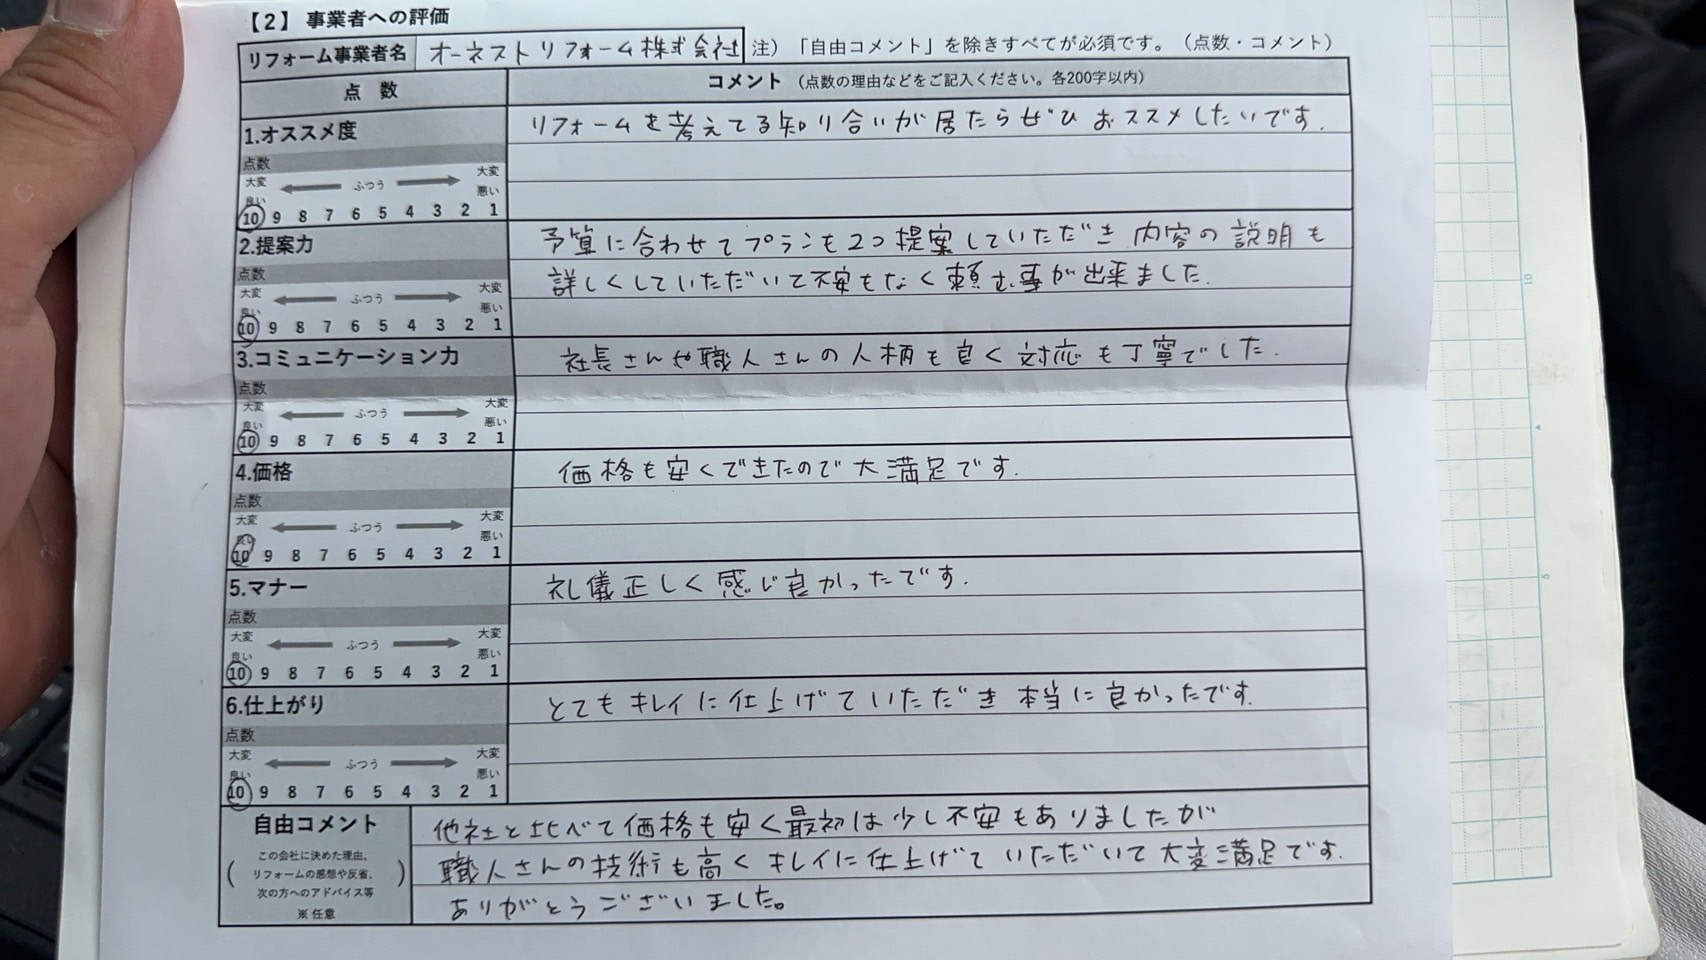 【2】 事業者への評価
リフォーム事業者名 オーネストリフォーム株式会社 注）「自由コメント」を除きすべてが必須です。（点数・コメント）
点 数 コメント （点数の理由などをご記入ください。各200字以内）
1.オススメ度
リフォームを考えてる知り合いが居たらぜひ おススメしたいです.
点数
大変良い ふつう 大変悪い
10 9 8 7 6 5 4 3 2 1
2.提案力
予算に合わせてプランも2つ提案していただき 内容の説明も
詳しくしていただいて不安もなく頼む事が出来ました.
点数
大変良い ふつう 大変悪い
10 9 8 7 6 5 4 3 2 1
3.コミュニケーション力
社長さんや職人さんの人柄も良く対応も丁寧でした.
点数
大変良い ふつう 大変悪い
10 9 8 7 6 5 4 3 2 1
4.価格
価格も安くできたので大満足です.
点数
大変良い ふつう 大変悪い
10 9 8 7 6 5 4 3 2 1
5.マナー
礼儀正しく感じ良かったです.
点数
大変良い ふつう 大変悪い
10 9 8 7 6 5 4 3 2 1
6.仕上がり
とてもキレイに仕上げていただき 本当に良かったです.
点数
大変良い ふつう 大変悪い
10 9 8 7 6 5 4 3 2 1
自由コメント
（この会社に決めた理由、
リフォームの感想や反省、
次の方へのアドバイス等）
※ 任意
他社と比べて価格も安く最初は少し不安もありましたが
職人さんの技術も高くキレイに仕上げて いただいて大変満足です.
ありがとうございました。
10
5